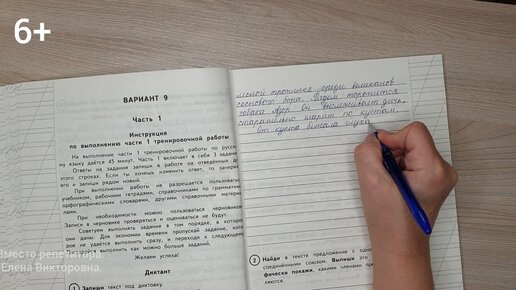 6+
ВАРИАНТ 9
Часть 1
Инструкция
по выполнению части 1 тренировочной работы
На выполнение части 1 тренировочной работы по русско-
му языку даётся 45 минут. Часть 1 включает в себя 3 задания.
Ответы на задания запиши в работе на отведённых для
этого строках. Если ты хочешь изменить ответ, то зачеркни
его и запиши рядом новый.
При выполнении работы не разрешается пользоваться
учебником, рабочими тетрадями, справочниками по грамматике,
орфографическими словарями, другими справочными материа-
лами.
При необходимости можно пользоваться черновиком.
Записи в черновике проверяться и оцениваться не будут.
Советуем выполнять задания в том порядке, в котором
они даны. Для экономии времени пропускай задание, кото-
рое не удаётся выполнить сразу, и переходи к следующему.
Постарайся выполнить как можно больше заданий.
Желаем успеха!
Диктант
1 Запиши текст под диктовку.
лесной тропинке среди великанов
соснового бора. Рядом торопится
собака
Он выслеживает дичь,
старательно шарит по кустам.
Из куста
2 Найди в тексте предложение с
соединёнными союзом. Выпиши
фически покажи, какими членами
ляются.
Вместо репетитора
Елена Викторовна.